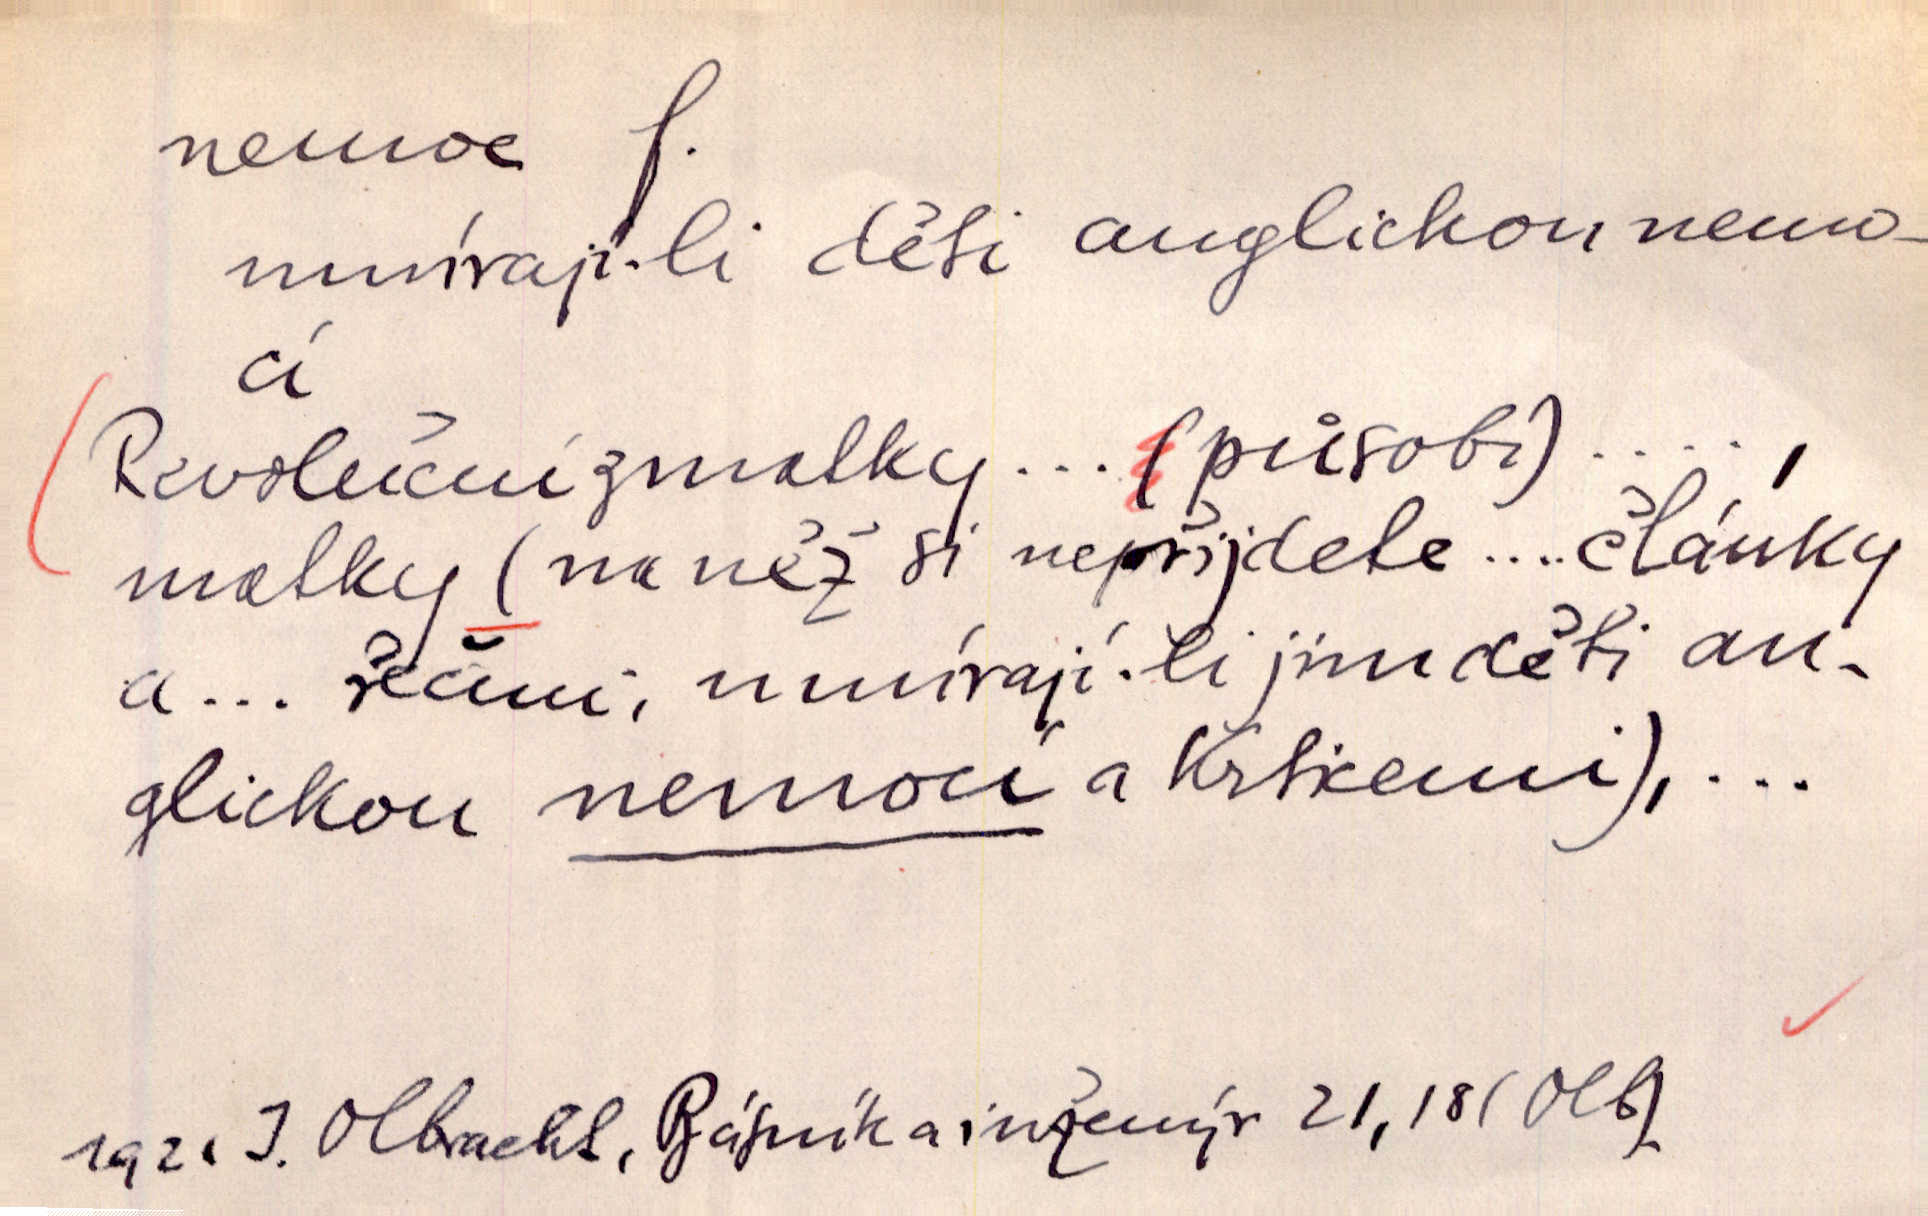 nemoc f.
umírají-li děti anglickou nemo-
cí
Revoluční zmatky ... (působí) .....,
matky (na něž si nepřijdete .... články
a ... řečmi, umírají-li jim děti an-
glickou nemocí a krticemi), ...
1921 I. Olbracht, Básník a inženýr 21, 18 (Olb)